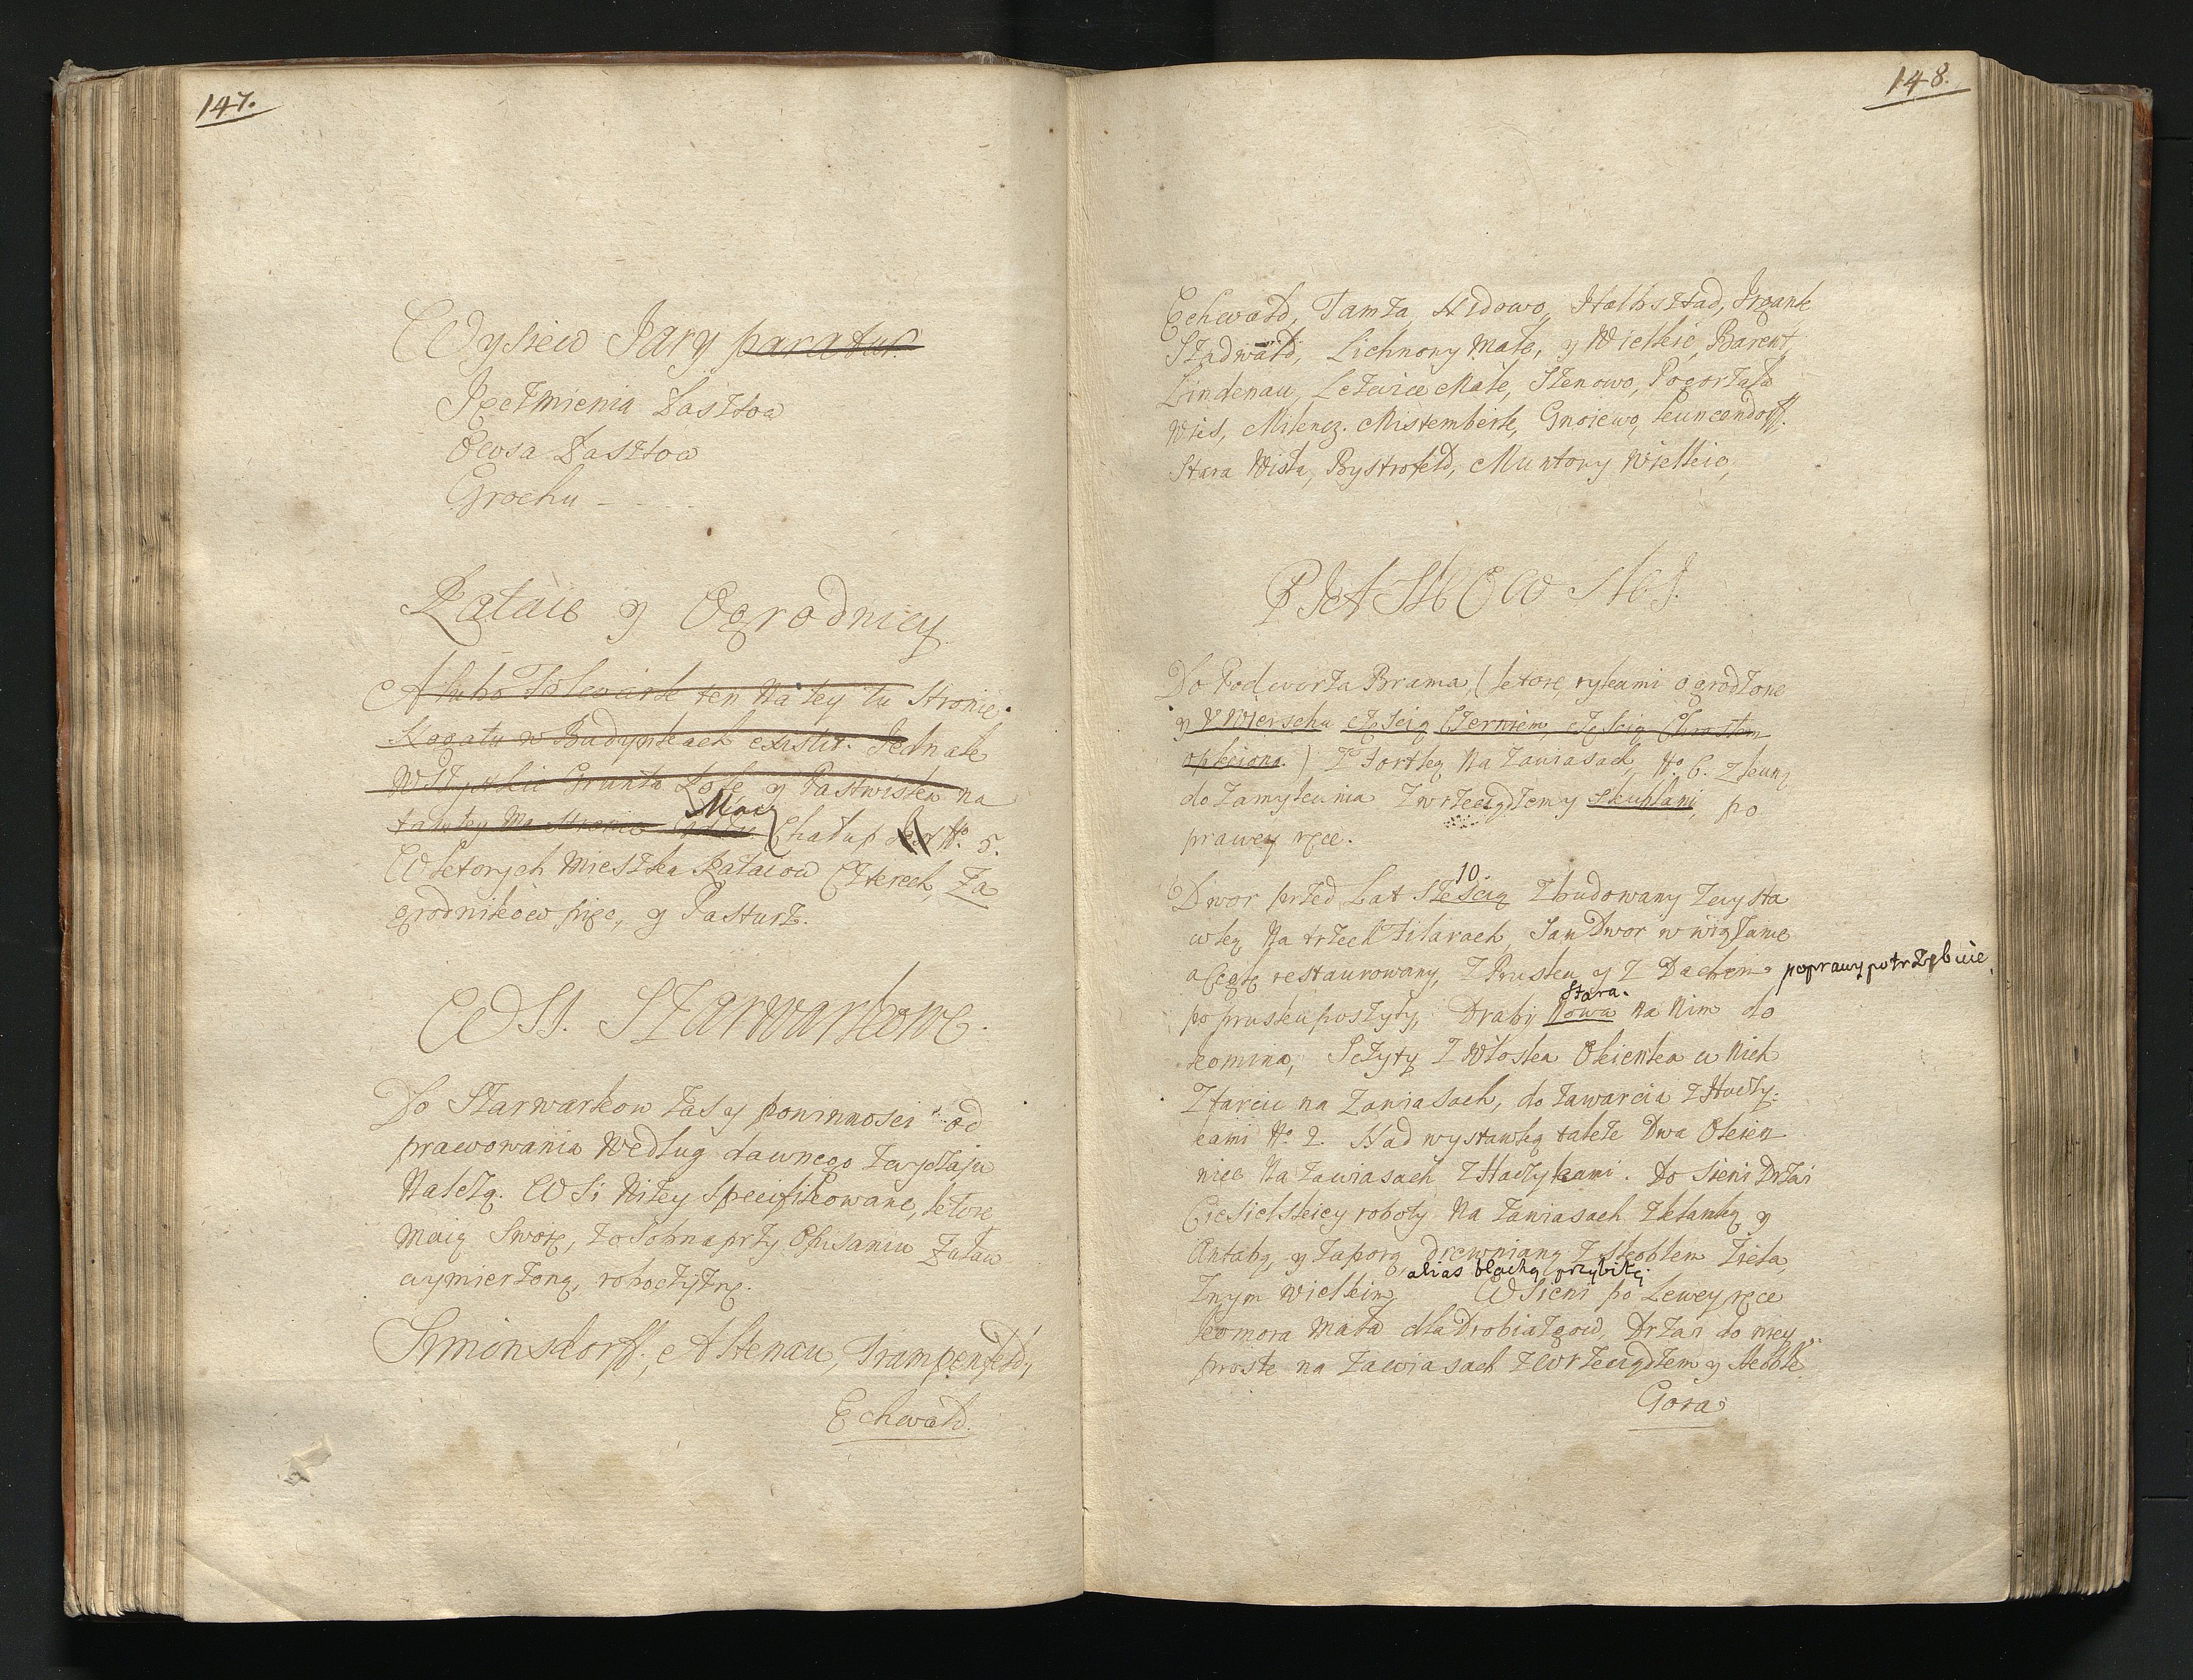 147.
Wysiew Jary paratur.
Jęczmienia Łasztow
Owsa Łasztow
Grochu - . . . .
Rataie y Ogrodnicy
A lubo Folwark ten Na tey tu stronie
Nogatu w Budynkach existit. Jednak
Wszystkie Grunta Role y Pastwiska na
tamtey Ma stronie Mac Chałup No. 5.
W ktorych Mieszka Rataiow Czterech, Za
grodnikow pięc, y Pasturz.
WSI. SZarwarkowe.
Do Szarwarkow zas y powinnosci od
prawowania Według dawnego zwyczaju
Należą. WSi Niżey Specifikowane, ktore
Maią Swoię, zosobna przy Opisaniu Żuław
wymierzoną, roboczyznę.
Simonsdorff, Altenau, Trampenfeld,
Echwałd.
148.
Echwałd, Tamża, Nidowo, Halbsztad, Irgank
Sztadwałd, Lichnowy Małe, y Wielkie, Barent,
Lindenau, Letwice Małe, Stenowo, Pogorzała
Wies, Milencz. Mistemberk, Gnoiewo, Kuncendorff.
Stara Wisła, Bystrofeld, Muntowy Wielkie,
PIASKOWSKI.
Do Podworza Brama, (ktore rykami ogrodzone
y V Wierschu częscią Czerniem, częscią Chrostem
opleciona.) Z Fortką Na Zawiasach, No. 6. Z kuną
do zamykania Zwrzeciądzemy skublami, po
prawey ręce.
10.
Dwor przed Lat Szescią Zbudowany Zwysta
wką Na trzech Filarach, Sam Dwor w wiązanie
a Cegłę restaurowany, Z Pruska y Z Dachem poprawy potrzebuie
Stara.
po prusku poszyty, Drabi Nowa Na Nim do
komina, Sczyty Z Włoska Okienka w Nich
Ztarcic na Zawiasach, do Zawarcia z Haczy-
kami No. 2. Nad wystawką także Dwa Okien
nice Na zawiasach z Haczykami. Do Sieni Drzwi
Ciesielskiey roboty Na zawiasach zklamką y
Antabą, y zaporą drewnianą z skoblem Żela,
alias blachą przybitą
Znym wielkim W Sieni po Lewey ręce
komora Mała dla Drobiazgow, Drzwi do niey
proste na zawiasach zwrzeciądzem y skoble
Gora